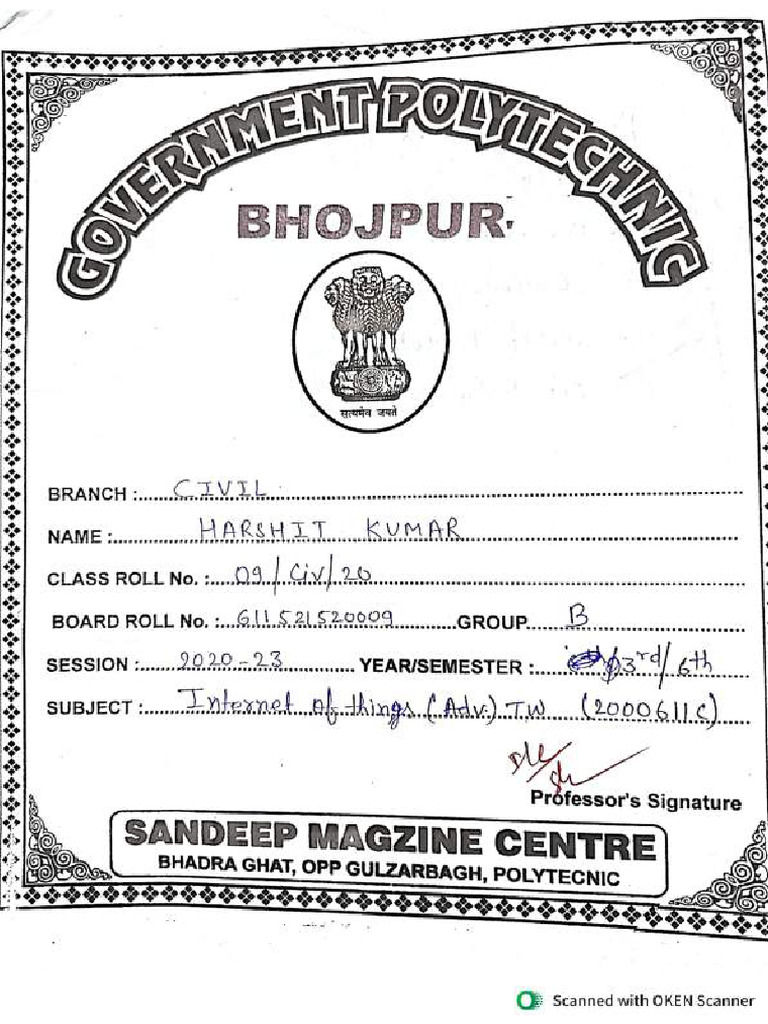 GOVERNMENT POLYTECHNIC
BHOJPUR
सत्यमेव जयते
BRANCH : CIVIL
NAME : HARSHIT KUMAR
CLASS ROLL No. : 09/Civ/20
BOARD ROLL No. : 611521520009 GROUP B
SESSION : 2020-23 YEAR/SEMESTER : 3rd/6th
SUBJECT : Internet of things (Adv.) TW (2000611C)
Professor's Signature
SANDEEP MAGZINE CENTRE
BHADRA GHAT, OPP GULZARBAGH, POLYTECNIC
Scanned with OKEN Scanner